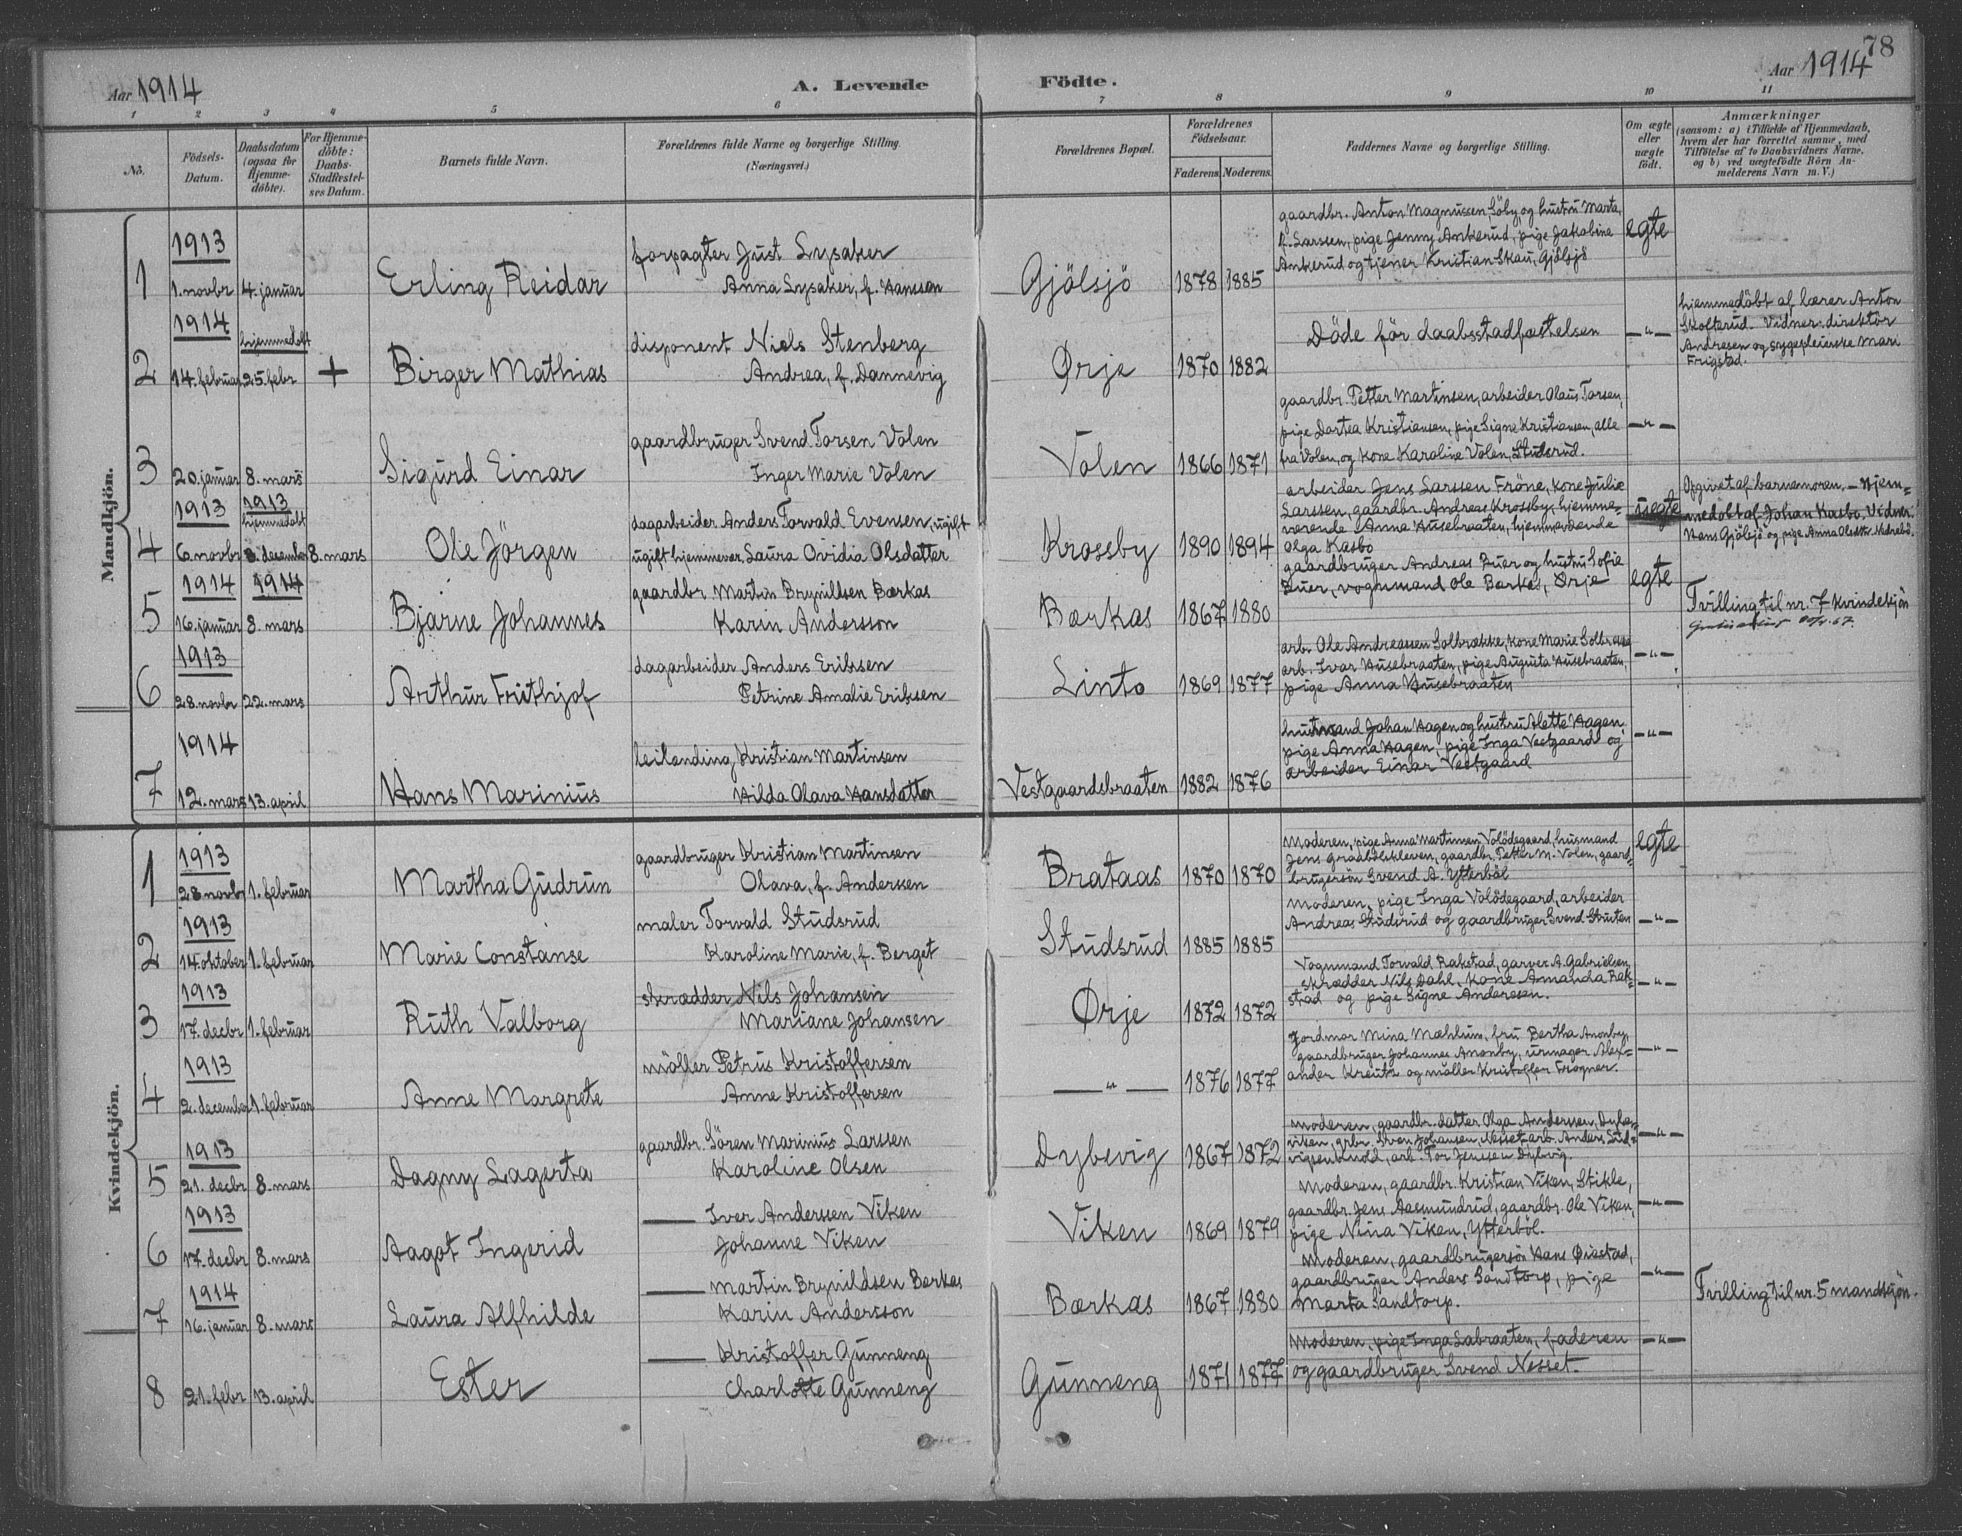 78
Aar 1914
A. Levende Födte.
Aar 1914
1 2 3 4 5 6 7 8 9 10 11
No.
Födsels-Datum.
Daabsdatum (ogsaa for Hjemme-döbte).
For Hjemme-döbte: Daabs-Stadfæstel-ses Datum.
Barnets fulde Navn.
Forældrenes fulde Navne og borgerlige Stilling. (Næringsvei.)
Forældrenes Bopæl.
Forældrenes Födselsaar.
Faderens. Moderens.
Faddernes Navne og borgerlige Stilling.
Om ægte eller uægte födt.
Anmærkninger
(saasom: a) i Tilfælde af Hjemmedaab,
hvem der har forrettet samme, med
Tilföielse af to Daabsvidners Navne.
og b) ved uægtefödte Börn An-
melderens Navn m. V.)
Mandkjön.
1
1913
1. novbr
4. januar
Erling Reidar
forpagter Just Lysaker
Anna Lysaker, f. Hansson
Gjölsjö
1878 1885
gaardbr. Anton Magnussen Söby og hustru Marta,
f. Larssen, pige Jenny Ankerud, pige Jakobine
Ankerud og tjener Kristian Skau, Gjölsjö
egte
2
1914
14. februar
hjemmedöbt
25. febr
+
Birger Mathias
disponent Niels Stenberg
Andrea, f. Dannevig
Ørje
1870 1882
Döde för daabsstadfæstelsen
—"—
hjemmedöbt af lærer Anton
Skofterud. Vidner: direktör
Andresen og sygepleierske Mari
Frigstad.
3
20. januar
8. mars
Sigurd Einar
gaardbruger Svend Torsen Volen
Inger Marie Volen
Volen
1866 1871
gaardbr. Petter Martinsen, arbeider Olaus Torsen,
pige Dortea Kristiansen, pige Signe Kristiansen, alle
fra Volen, og kone Karoline Volen, Studsrud.
—"—
4
1913
6. novbr
1913
hjemmedöbt
8. december
8. mars
Ole Jörgen
dagarbeider Anders Torvald Evensen, ugift
ugift hjemmevær. Laura Ovidia Olsdatter
Krossby
1890 1894
arbeider Jens Larssen Fröne, kone Julie
Larssen, gaardbr. Andreas Krossby, hjemme-
værende Anna Husebraaten, hjemmeværende
Olga Kasbo
uegte
Opgivet af barnemoren. — Hjem-
medöbt af Johan Kasbo, Vidner:
Hans Gjölsjö og pige Anna Olsdtr. Nedrebö.
5
1914
16. januar
1914
8. mars
Bjarne Johannes
gaardbr. Martin Brynildsen Bærkas
Karin Andersson
Bærkas
1867 1880
gaardbruger Andreas Buer og hustru Sofie
Buer, vognmand Ole Berkas, Ørje
egte
Tvilling til nr. 7 kvindekjön
6
1913
28. novbr
22. mars
Arthur Frithjof
dagarbeider Anders Eriksen
Petrine Amalie Eriksen
Linto
1869 1877
arb. Ole Andreassen Solbrække, kone Marie Solbrække
arb. Ivar Husebraaten, pige Augusta Husebraaten,
pige Anna Husebraaten
—"—
7
1914
12. mars
13. april
Hans Marinius
leilending Kristian Martinsen
Hilda Olava Hansdatter
Vestgaardsbraaten
1882 1876
husmand Johan Hagen og hustru Alette Hagen
pige Anna Hagen, pige Inga Vestgaard og
arbeider Einar Vestgaard
—"—
Kvindekjön.
1
1913
28 novbr
1. februar
Martha Gudrun
gaardbruger Kristian Martinsen
Olava, f. Anderssen
Brataas
1870 1870
Moderen, pige Anna Martinsen Volödegaard, husmand
Jens Graabölskleven, gaardbr. Petter M. Volen, gaard-
brugersön Svend A. Ytterböl
egte
2
1913
14. oktober
1. februar
Marie Constanse
maler Torvald Studsrud
Karoline Marie, f. Berget
Studsrud
1885 1885
Moderen, pige Inga Volödegaard, arbeider
Andreas Studsrud og gaardbruger Svend Struten
—"—
3
1913
17. decbr
1. februar
Ruth Valborg
skrædder Nils Johansen
Mariane Johansen
Ørje
1872 1872
Vognmand Torvald Rakstad, garver A. Gabrielsen,
skrædder Nils Dahl, kone Amanda Rak-
stad og pige Signe Andersen.
—"—
4
1913
2. december
1. februar
Anne Margrete
möller Petrus Kristoffersen
Anne Kristoffersen
—"—
1876 1877
Jordmor Mina Mæhlum, fru Bertha Anonby,
gaardbruger Johannes Anonby, urmager Alex-
ander Kreutz og möller Kristoffer Frogner.
—"—
5
1913
21. decbr
8. mars
Dagny Lagerta
gaardbr. Sören Marinius Larssen
Karoline Olsen
Dybevig
1867 1872
Moderen, gaardbr. datter Olga Anderssen, Dybe-
viken, grbr. Sven Johansen, Nesset, arb. Anders Lud-
arb. Tor Jenssen Dybvig.
—"—
6
1913
17. decbr
8. mars
Aagot Ingerid
— Iver Anderssen Viken
Johanne Viken
Viken
1869 1879
Moderen, gaardbr. Kristian Viken, Stikle,
gaardbr. Jens Aasmundrud, gaardbr. Ole Viken,
pige Nina Viken, Ytterböl.
—"—
7
1914
16. januar
8. mars
Laura Alfhilde
— Martin Brynildsen Berkas
Karin Andersson
Bærkas
1867 1880
Moderen, gaardbrugersön Hans Øiestad,
gaardbruger Anders Sandtorp, pige
Marta Sandtorp.
—"—
Tvilling til nr. 5 mandkjön.
8
21. febr
13. april
Ester
— Kristoffer Gunneng
Charlotte Gunneng
Gunneng
1871 1877
Moderen, pige Inga Labraaten, faderen
og gaardbruger Svend Nesset.
—"—